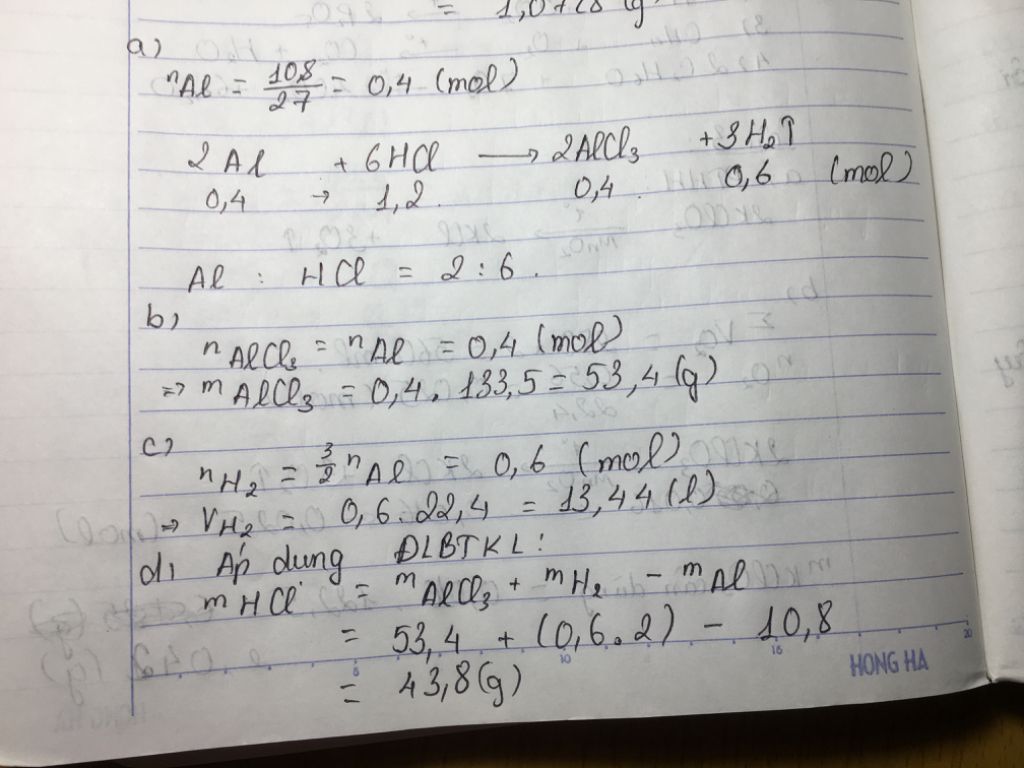 = 1,0
a)
nAl = 10,8/27 = 0,4 (mol)
2Al + 6HCl ⟶ 2AlCl₃ + 3H₂↑
0,4 → 1,2. 0,4. 0,6 (mol)
Al : HCl = 2:6.
b)
nAlCl₃ = nAl = 0,4 (mol)
=> mAlCl₃ = 0,4 . 133,5 = 53,4 (g)
c)
nH₂ = 3/2 nAl = 0,6 (mol)
=> VH₂ = 0,6.22,4 = 13,44 (l)
d) Áp dung ĐLBTKL:
mHCl = mAlCl₃ + mH₂ - mAl
= 53,4 + (0,6.2) - 10,8
= 43,8 (g)
5 10 15 20
HONG HA